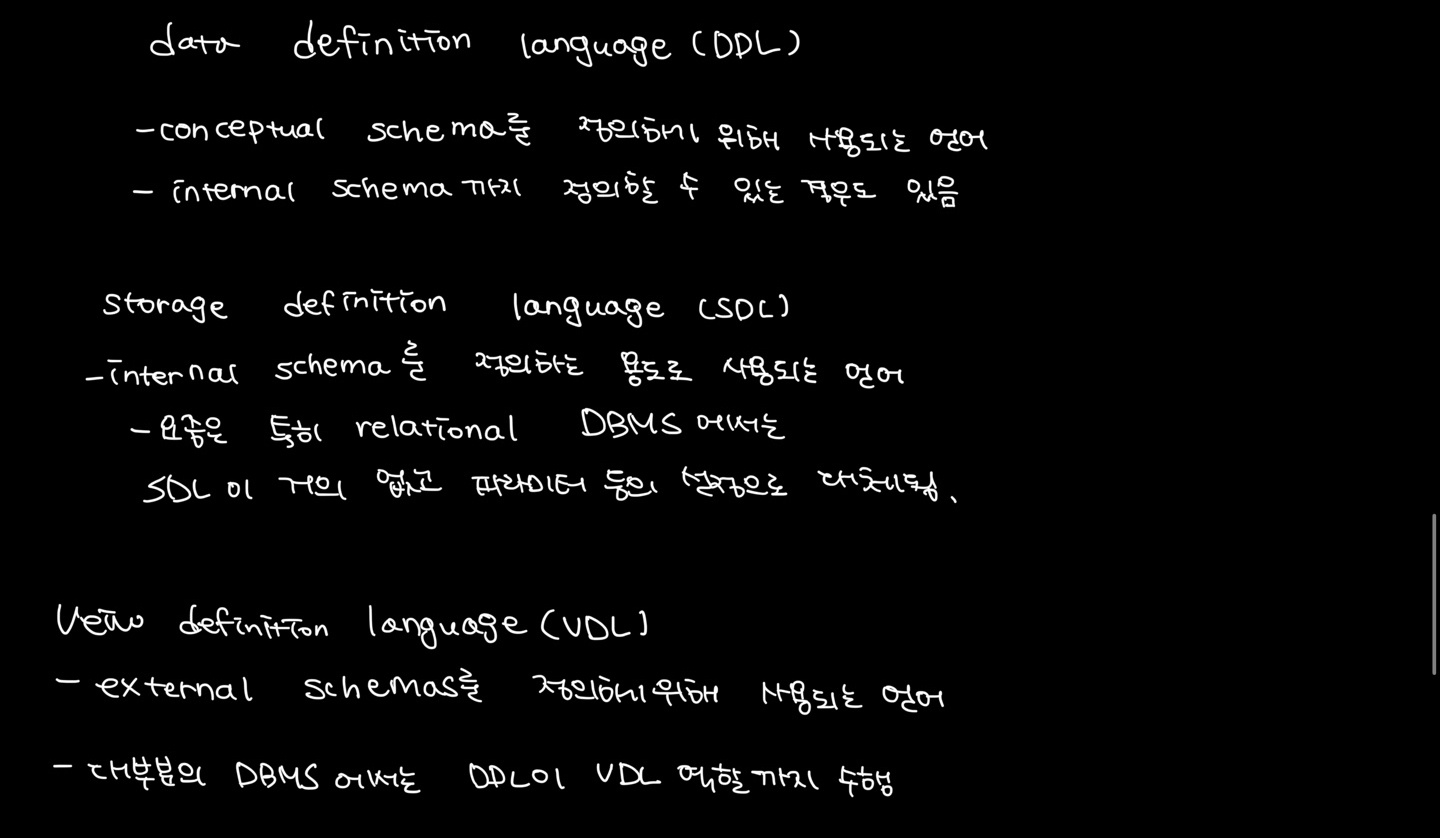 data definition language (DDL)
- conceptual schema를 정의하기 위해 사용되는 언어
- internal schema 까지 정의할 수 있는 경우도 있음
storage definition language (SDL)
- internal schema를 정의하는 용도로 사용되는 언어
- 요즘은 특히 relational DBMS 에서는
SDL이 거의 없고 파라미터 등의 설정으로 대체됨.
Veiw definition language (VDL)
- external schemas를 정의하기위해 사용되는 언어
- 대부분의 DBMS 에서는 DDL이 VDL 역할까지 수행